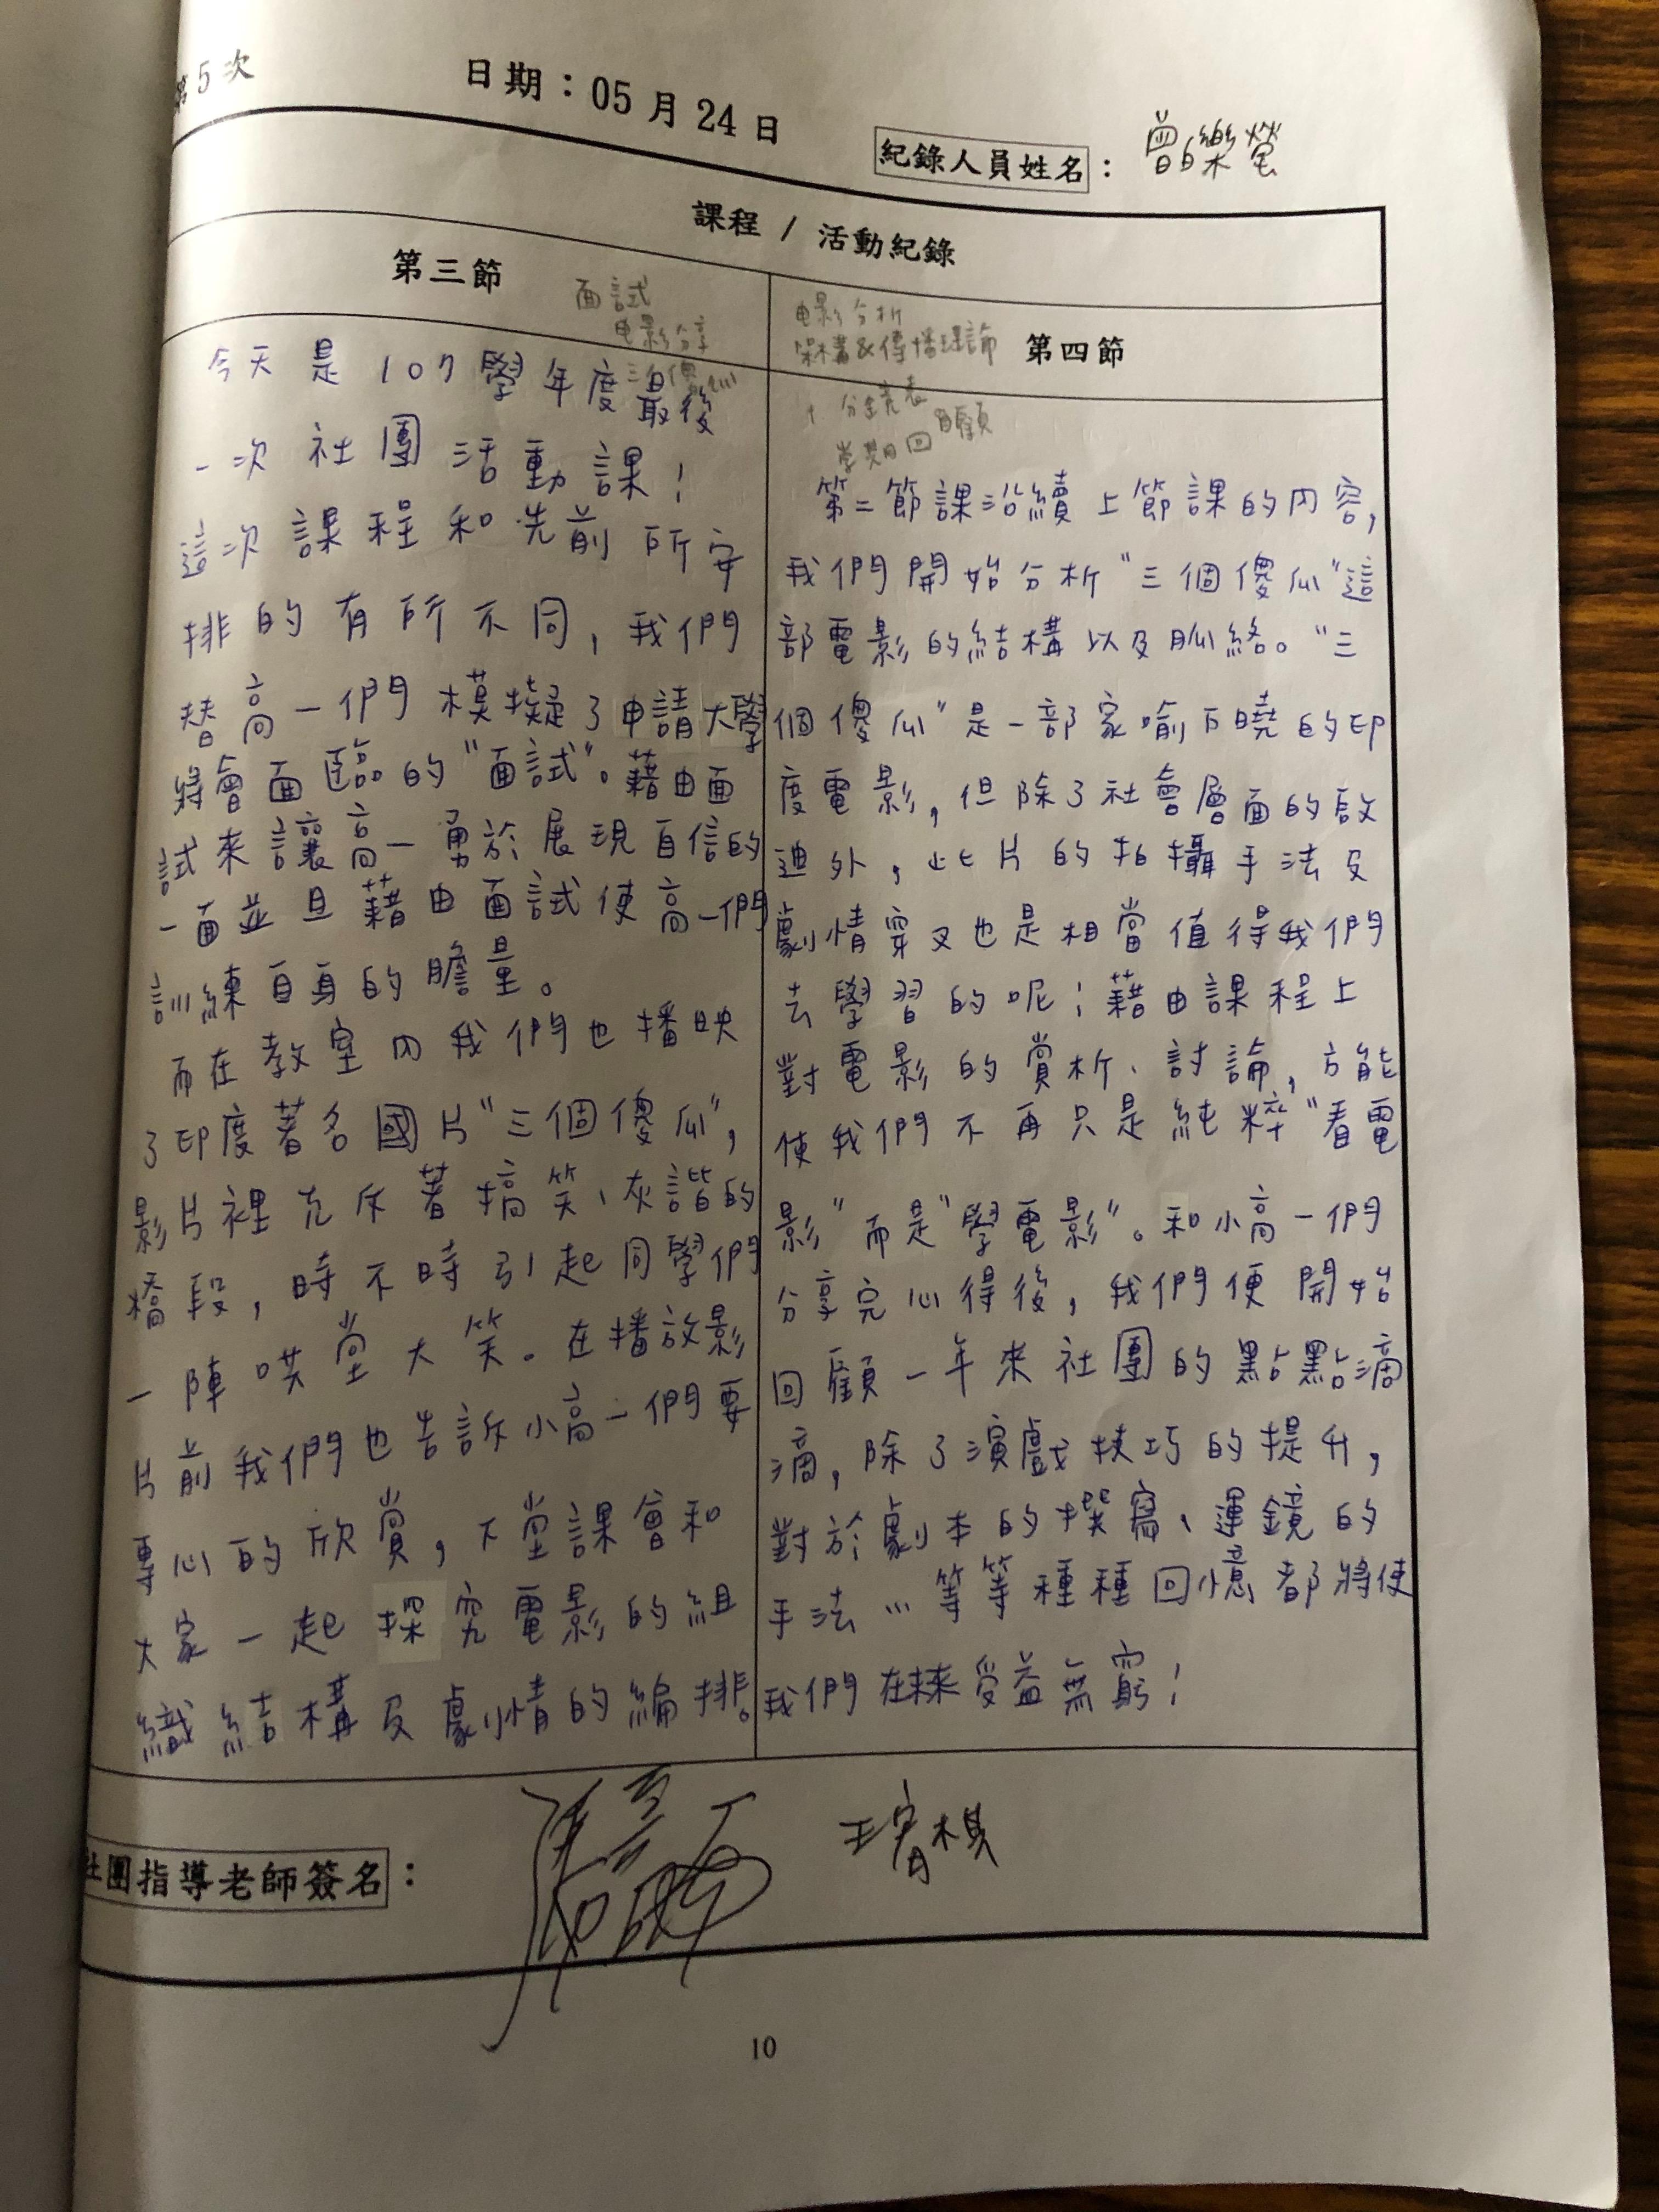 第5次
日期：05月24日
紀錄人員姓名：曾樂瑩
課程 / 活動紀錄
第三節
面試
电影分享
三個傻瓜
今天是107學年度最後
一次社團活動課！
這次課程和先前所安
排的有所不同，我們
替高一們模擬了申請大學
將會面臨的"面試"。藉由面
試來讓高一勇於展現自信的
一面並且藉由面試使高一們
訓練自身的膽量。
而在教室內我們也播映
了印度著名國片"三個傻瓜"，
影片裡充斥著搞笑、灰諧的
橋段，時不時引起同學們
一陣哄堂大笑。在播放影
片前我們也告訴小高一們要
專心的欣賞，下堂課會和
大家一起探究電影的組
織結構及劇情的編排。
电影分析
架構&傳播理論
第四節
+ 分鏡表
學期回顧
第二節課沿續上節課的內容，
我們開始分析"三個傻瓜"這
部電影的結構以及脈絡。"三
個傻瓜"是一部家喻戶曉的印
度電影，但除了社會層面的啟
迪外，此片的拍攝手法及
劇情穿叉也是相當值得我們
去學習的呢；藉由課程上
對電影的賞析、討論，方能
使我們不再只是純粹"看電
影"而是"學電影"。和小高一們
分享完心得後，我們便開始
回顧一年來社團的點點滴
滴，除了演戲技巧的提升，
對於劇本的撰寫、運鏡的
手法…等等種種回憶都將使
我們在未來受益無窮！
社團指導老師簽名：
10